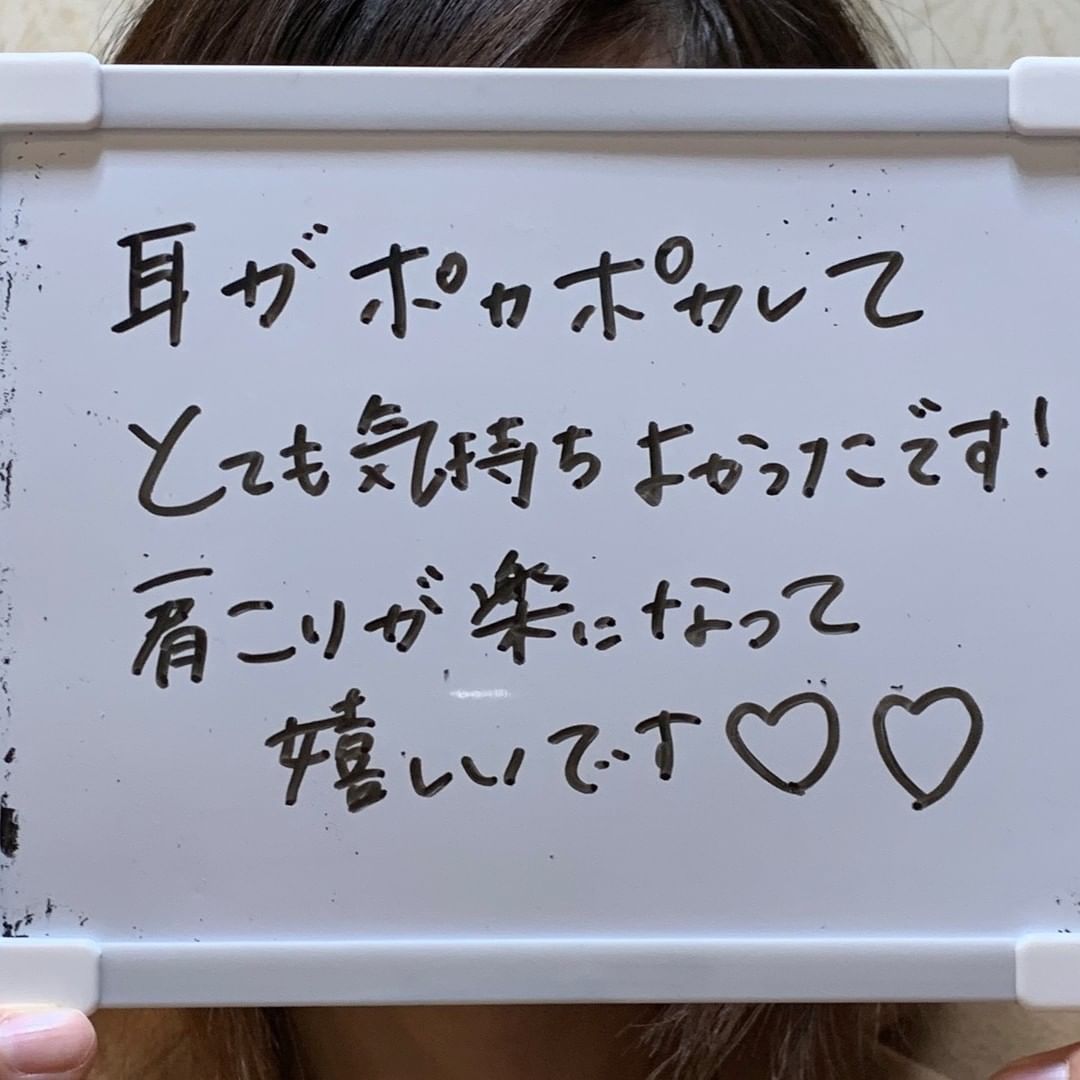 耳がポカポカして
とても気持ちよかったです!
肩こりが楽になって
嬉しいです♡♡